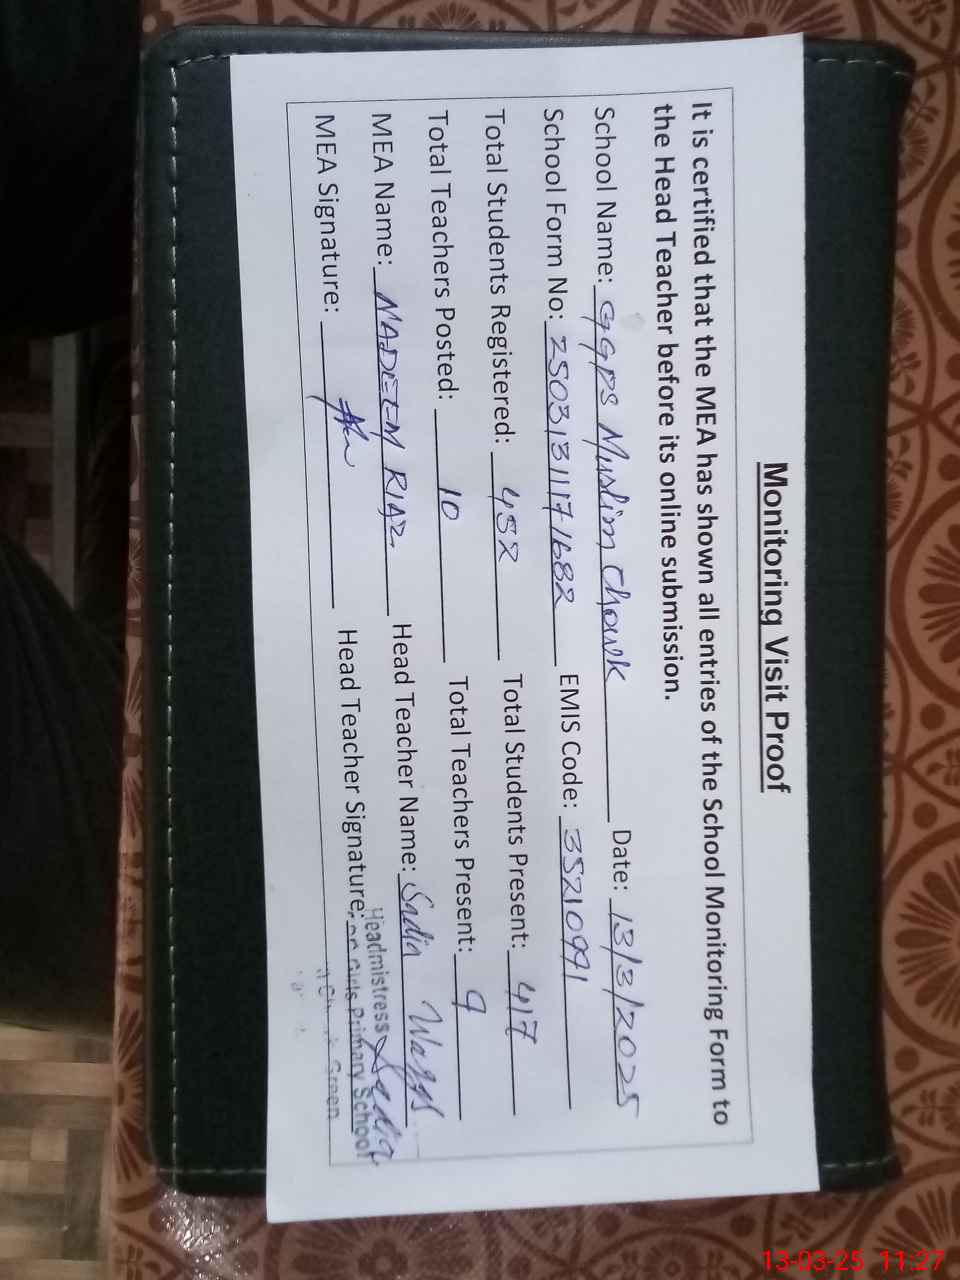 Monitoring Visit Proof
It is certified that the MEA has shown all entries of the School Monitoring Form to
the Head Teacher before its online submission.
School Name: GGPS Muslim Chowk Date: 13/3/2025
School Form No: 2503131171682 EMIS Code: 35210991
Total Students Registered: 452 Total Students Present: 417
Total Teachers Posted: 10 Total Teachers Present: 9
MEA Name: NADEEM RIAZ. Head Teacher Name: Sadia Waqas
MEA Signature: Head Teacher Signature: Sadia
Headmistress
Girls Primary School
Green
13-03-25 11:27